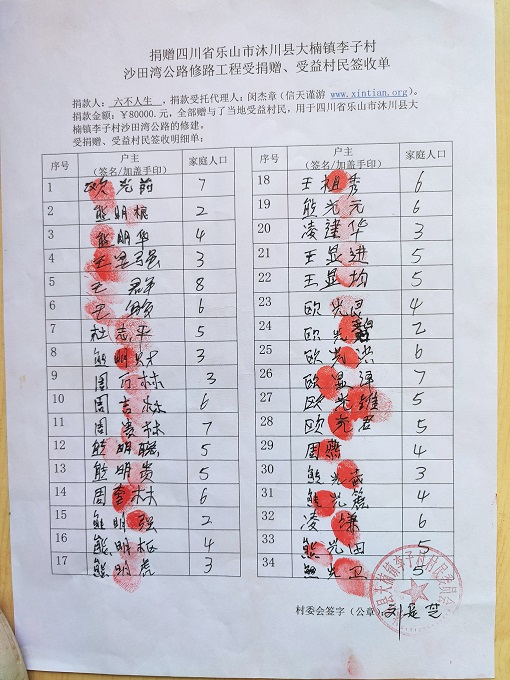 捐赠四川省乐山市沐川县大楠镇李子村
沙田湾公路修路工程受捐赠、受益村民签收单
捐款人：六不人生，捐款受托代理人：闵杰章（信天谨游 www.xintian.org）。
捐款金额：¥80000.元，全部赠与了当地受益村民，用于四川省乐山市沐川县大
楠镇李子村沙田湾公路的修建。
受捐赠、受益村民签收明细单：
序号 户主（签名/加盖手印） 家庭人口
1 欧光前 7
2 熊明 2
3 熊明华 4
4 王 3
5 王群 8
6 王 6
7 杜志平 5
8 熊明 3
9 周 林 3
10 周吉林 6
11 周凌林 7
12 熊明聪 5
13 熊明贵 5
14 周 林 6
15 熊明强 2
16 熊明 4
17 熊明虎 3
序号 户主（签名/加盖手印） 家庭人口
18 王祖秀 6
19 熊光元 6
20 凌建华 3
21 王显进 5
22 王显均 5
23 欧光 4
24 欧光 2
25 欧光洪 6
26 欧显泽 7
27 欧光雄 5
28 欧光君 5
29 周 4
30 熊光 3
31 熊光 4
32 凌谦 6
33 熊光田 5
34 熊光卫 5
村委会签字（公章）：刘
县大楠镇李子村村民委员会